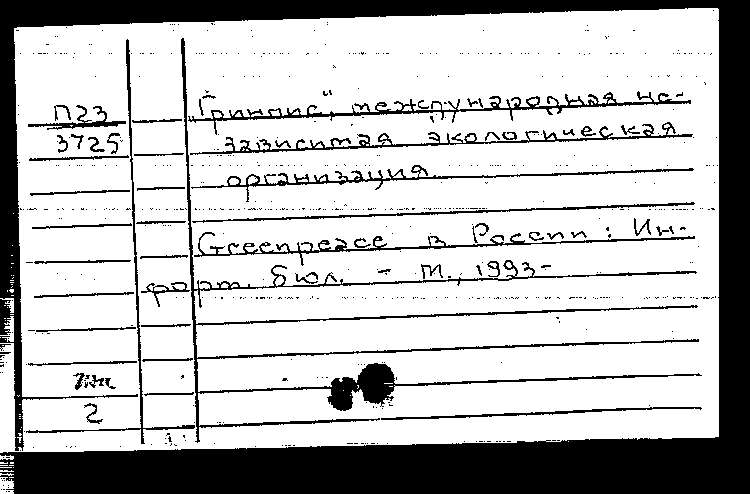 П23
3725
„Гринпис", международная не-
зависимая экологическая
организация.
Greenpeace в России: Ин-
форм. бюл. - М., 1993-
2